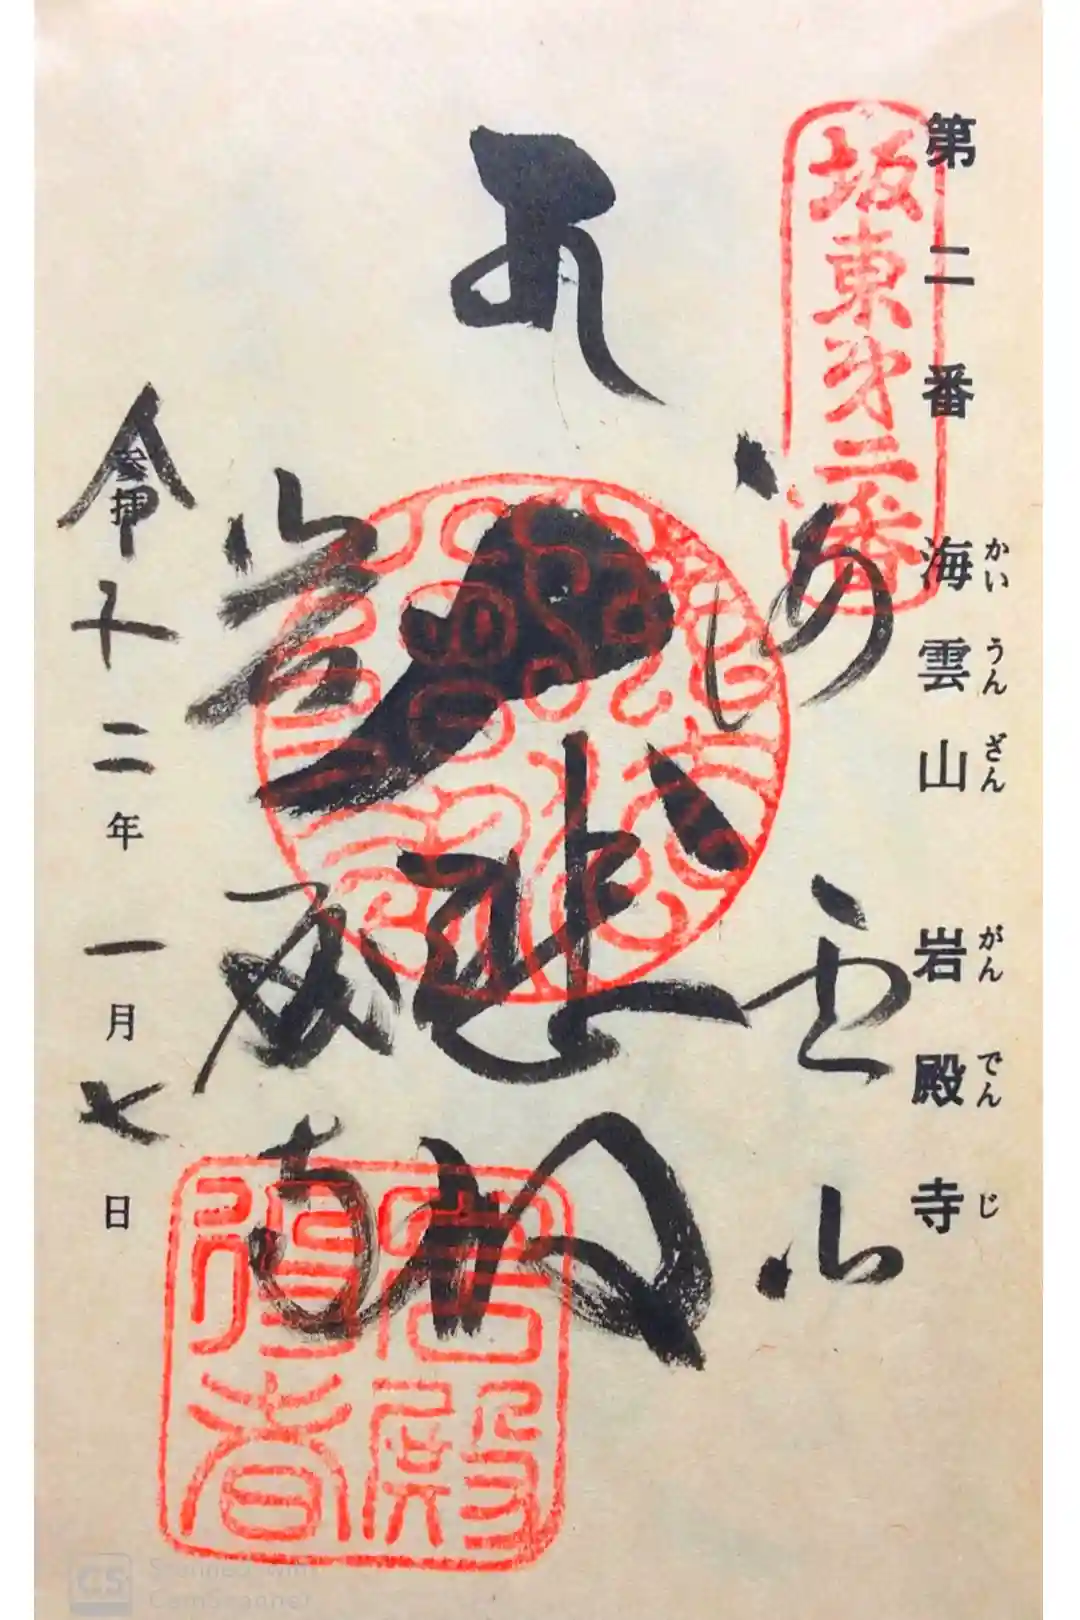 第二番 海雲山 岩殿寺
かいうんざん がんでんじ
坂東第二番
海雲山
大悲閣
岩殿寺
参拝
令和二年一月七日
Scanned with
CamScanner
CS